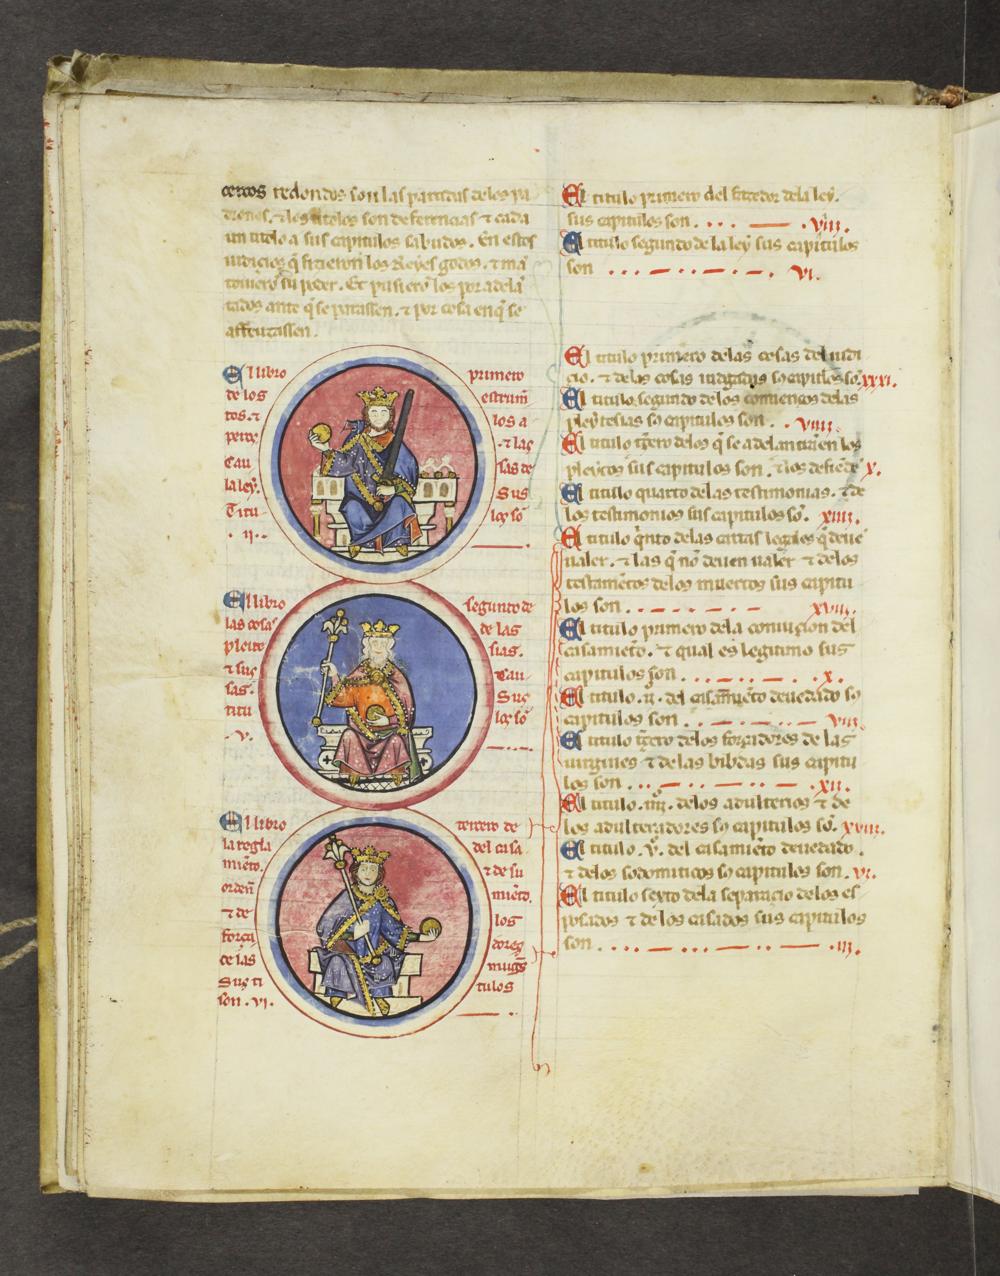 cercos redondos son las partidas delos pa
drones. ⁊ los titolos son deferencias ⁊ cada
un titolo a sus capitulos sabudos. En estos
iudicios q̃ fizieron los Reyes godos. ⁊ mã
touierõ su poder. Et pusierõ los por adelã
tados ante q̃ se parassen. ⁊ por cosa en q̃ se
affeutassen.
El libro primero
de los estrum̃
tos. ⁊ los a
⁊ las
Cau sas de
la ley. Sus
Titu los sõ
. ii . .
El libro segundo de
las cosas de las
pleito sias.
⁊ sus Cau
sas. Sus
titu los sõ
. v .
El libro tercero de
la rogla del casa
miẽto. ⁊ de su
ordeñ miẽto.
⁊ de los
força dores
de las mugs̃
Sus ti tulos
son . vi .
El titulo primero del fazedor dela ley.
sus capitulos son . . . . viiii .
El titulo segundo de la ley sus capitulos
son . . . . vi .
El titulo primero delas cosas del iudi
cio. ⁊ delas cosas iudgadas ss capitulos sõ. xxxi .
El titulo segundo de los comienços delas
pleytesias ss capitulos son . . viiii .
El titulo t̃cero delos q̃ se adelantan en los
pleytos sus capitulos son . x .
El titulo quarto delas testimonias. ⁊ de
los testimonios sus capitulos sõ. xiiii .
El titulo q̃nto delas cartas legales q̃ deue
ualer. ⁊ las q̃ nõ deuen ualer ⁊ delos
testamẽtos delos muertos sus capitu
los son . . . . xviii .
El titulo primero dela coniuçion del
casamiẽto. ⁊ qual es legitimo sus
capitulos son . . . . x .
El titulo .ii. del casamiẽto deuedado ss
capitulos son . . . . viii .
El titulo t̃cero delos forçadores de las
uirgines ⁊ de las bibdas sus capitu
los son . . . . xii .
El titulo .iiii. delos adulterios ⁊ de
los adulteradores ss capitulos sõ. xviii .
El titulo .v. del casamiẽto deuedado.
⁊ delos sodomiticos ss capitulos son. vi .
El titulo sexto dela separacio delos es
posados ⁊ delos casados sus capitulos
son . . . . iii .